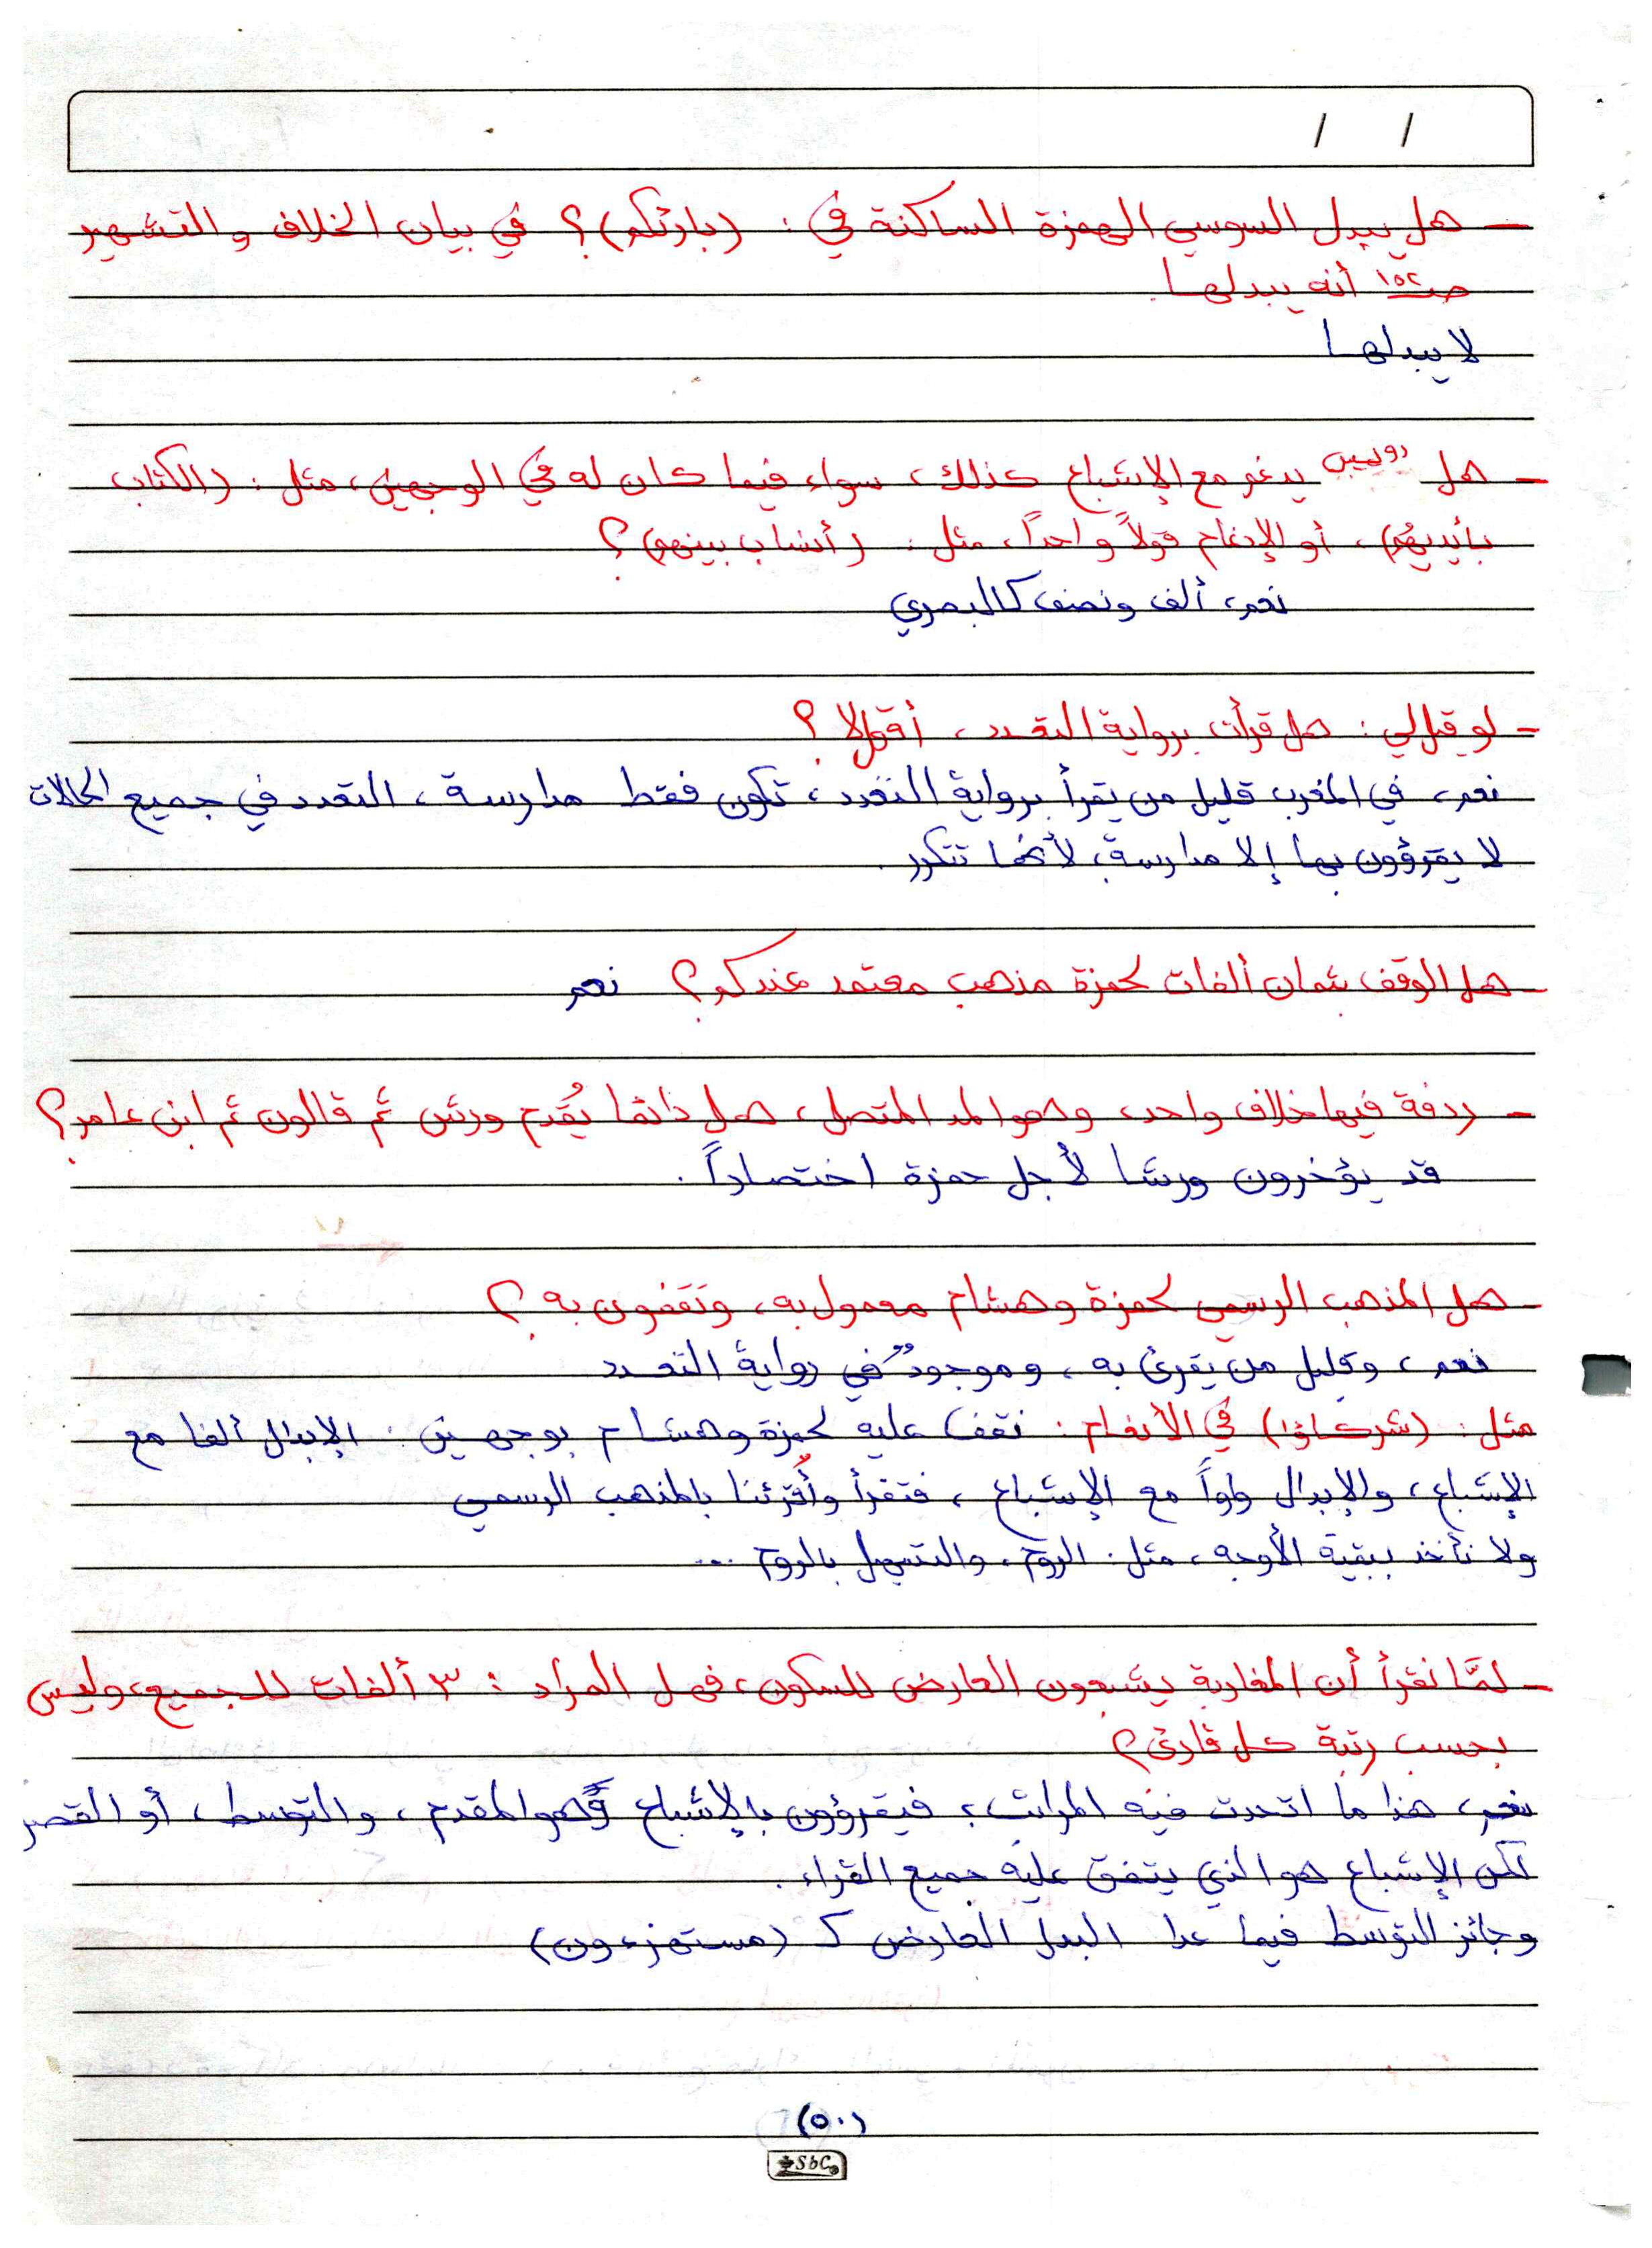 / /
- هل يبدل السوسي الهمزة الساكنة في : (بارئكم) ؟ في بيان الخلاف والتشهير
صـ١٥٢ أنه يبدلها
لا يبدلها
- هل رويس يدغم مع الإشباع كذلك، سواء فيما كان له في الوجهين، مثل : (الكتاب
بأيديهُم)، أو الإدغام قولاً واحداً، مثل : (أنساب بينهم) ؟
نعم، ألف ونصف كالبصري
- لو قيل لي : هل قرأت برواية التعدد، أقول لا ؟
نعم، في المغرب قليل من يقرأ برواية التعدد، تكون فقط مدارسة، التعدد في جميع الحالات
لا يقرؤون بها إلا مدارسة، لأنها تتكرر.
- هل الوقف بثمان ألفات لحمزة مذهب معتمد عندكم؟ نعم
- ردفة فيها خلاف واحد، وهو المد المتصل، هل دائما يُقدم ورش ثم قالون ثم ابن عامر؟
قد يؤخرون ورشا لأجل حمزة اختصاراً.
- هل المذهب الرسمي لحمزة وهشام معمول به، وتقفون به ؟
نعم، وقليل من يقرئ به، وموجودٌ في رواية التعدد
مثل : (شركاؤا) في الأنعام : نقف عليه لحمزة وهشام بوجهين : الإبدال ألفا مع
الإشباع، والإبدال واواً مع الإشباع، فنقرأ وأُقرئنا بالمذهب الرسمي
ولا نأخذ ببقية الأوجه، مثل : الروم، والتسهيل بالروم ...
- لمَّا نقرأ أن المغاربة يشبعون العارض للسكون، فهل المراد : ٣ ألفات للجميع، وليس
بحسب رتبة كل قارئ؟
نعم، هذا ما اتحدت فيه المراتب، فيقرؤون بالإشباع وهو المقدم، والتوسط، أو القصر
لكن الإشباع هو الذي يتفق عليه جميع القراء.
وجائز التوسط فيما عدا البدل العارض كـ (مستهزءون)
(٥٠)
SbC